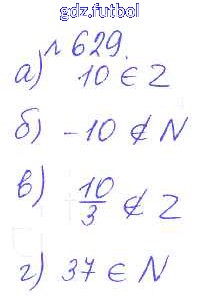 gdz.futbol
№629.
а) 10 ∈ Z
б) -10 ∉ N
в) 10/3 ∉ Z
г) 37 ∈ N